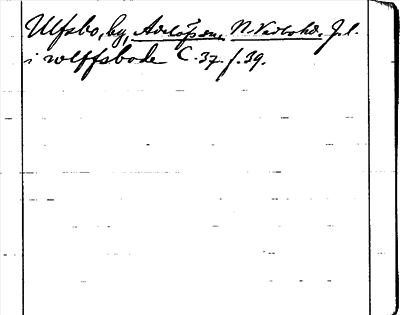 Ulfsbo, by, Adelöfs sn, N. Vedbohd. J.l.
i wlffsbode C. 37. f. 39.